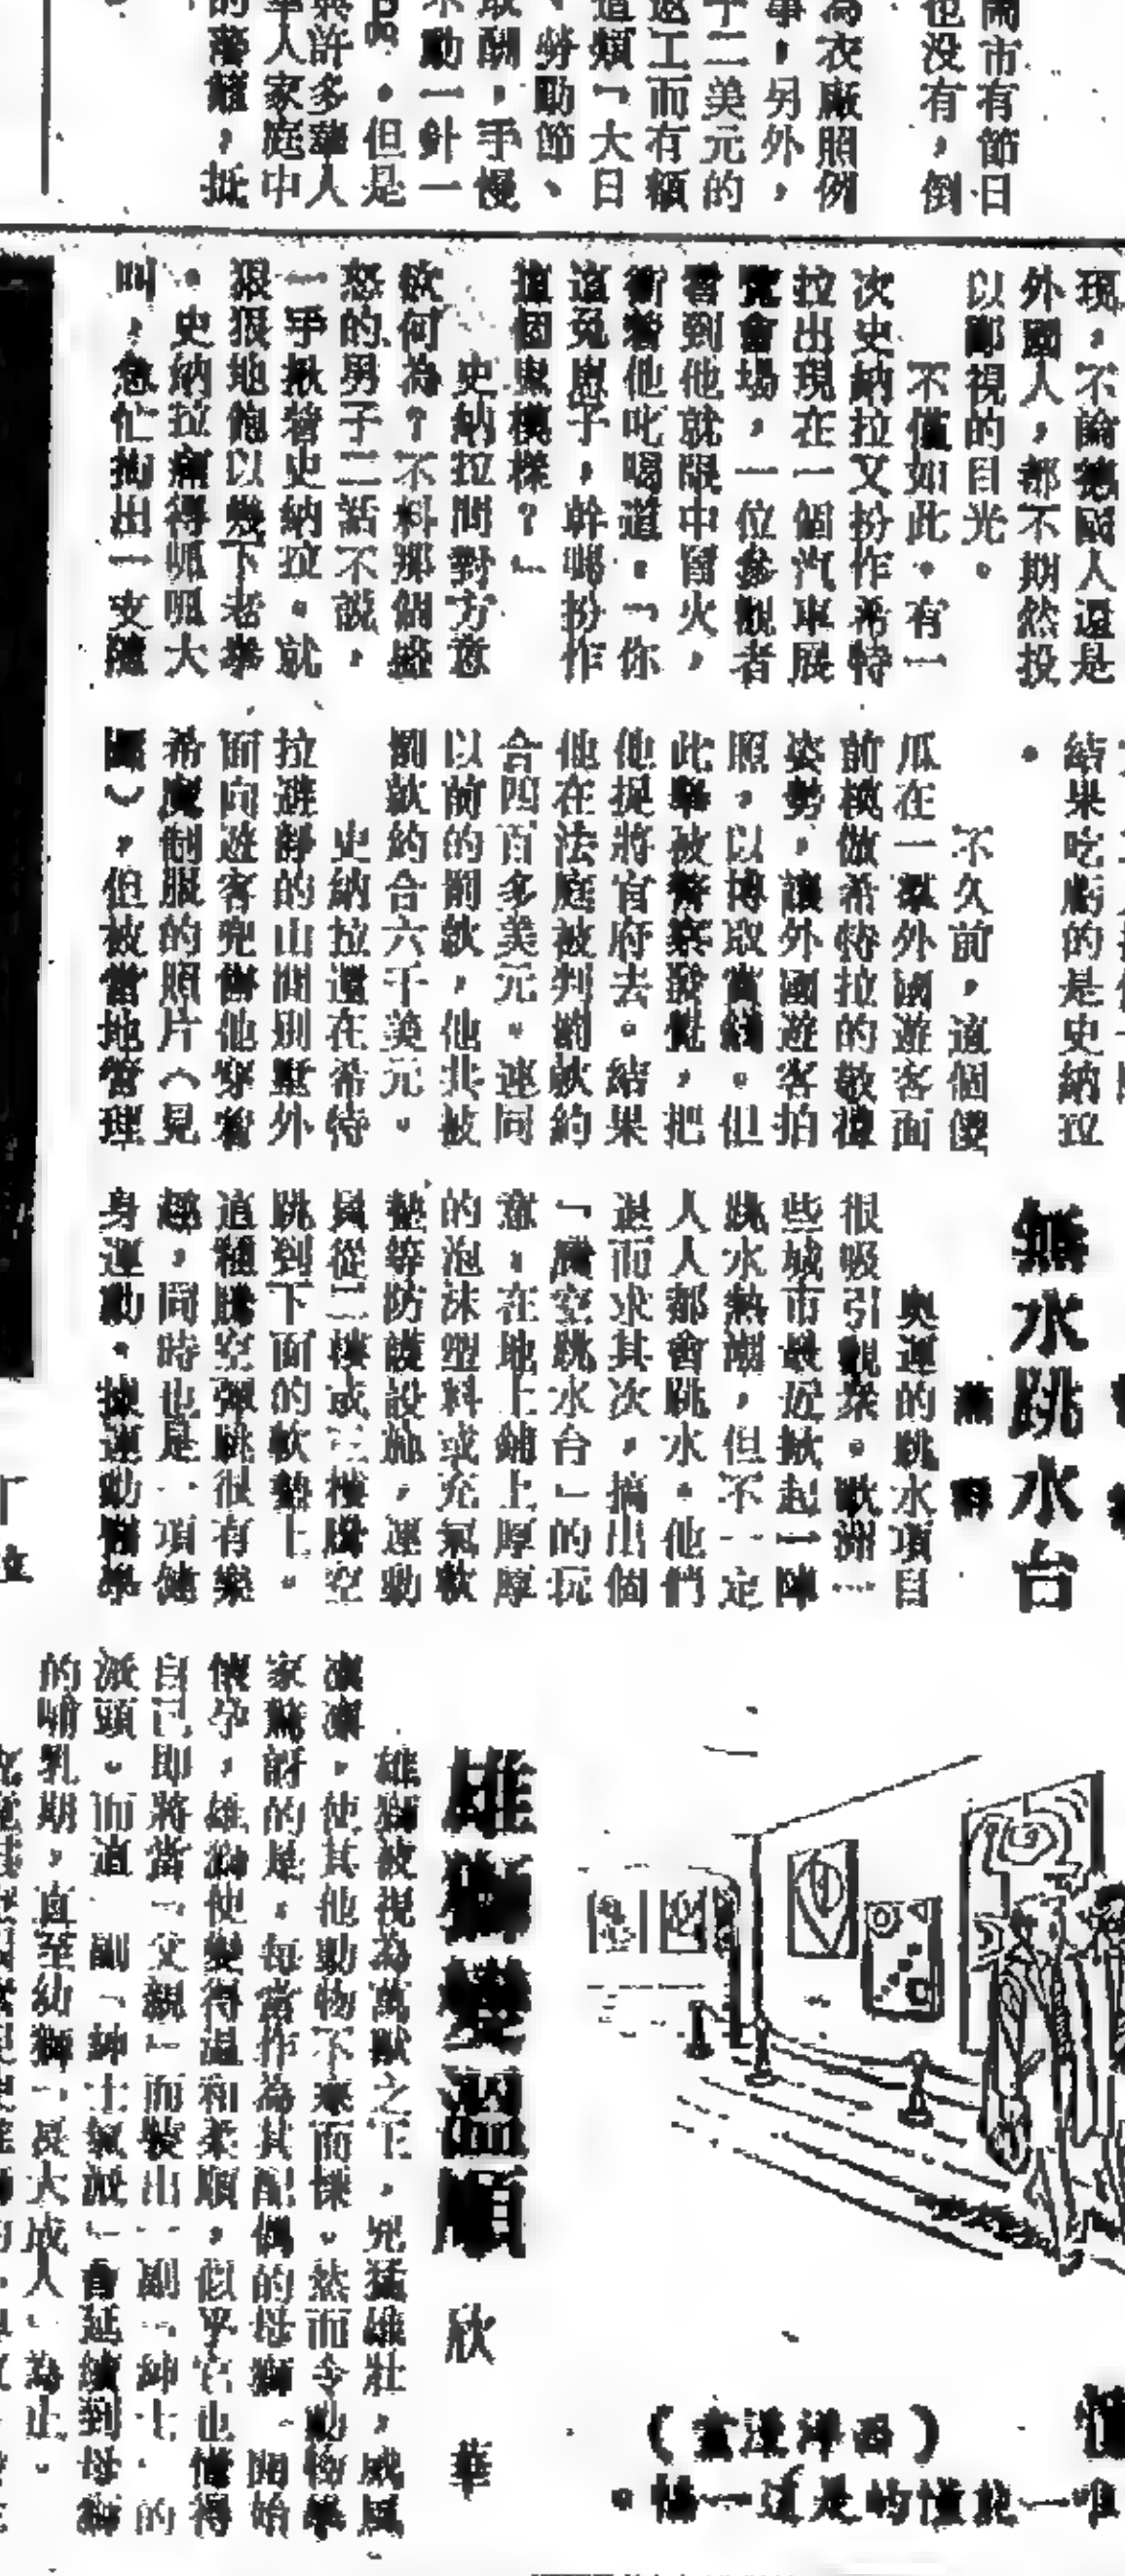 鬧市有節日
也没有，倒
為衣廠照例
事，另外，
十二美元的
返工而有額
這類「大日
、勞動節、
取酬，手慢
不動一針一
品。但是
與許多華人
華人家庭中
的藩籬，抵
現，不論德國人還是
外國人，都不期然投
以鄙視的目光。
不僅如此。有一
次史納拉又扮作希特
拉出現在一個汽車展
覽會場，一位參觀者
看到他就眼中冒火，
衝着他叱喝道。「你
這兔崽子，幹嗎扮作
這個鬼模樣？」
史納拉問對方意
欲何為？不料那個盛
怒的男子二話不說，
一手揪着史納拉。就
狠狠地飽以幾下老拳
。史納拉痛得呱呱大
叫，急忙掏出一支隨
結果吃虧的是史納拉
。
不久前，這個傻
瓜在一羣外國遊客面
前模倣希特拉的敬禮
姿勢，讓外國遊客拍
照，以博取賞錢。但
此舉被警察發覺，把
他捉將官府去。結果
他在法庭被判罰款約
合四百多美元。連同
以前的罰款，他共被
罰款約合六千美元。
史納拉還在希特
拉避靜的山間別墅外
面向遊客兜售他穿着
希魔制服的照片（見
圖），但被當地管理
無水跳水台
奥運的跳水項目
很吸引觀衆。歐洲一
些城市最近掀起一陣
跳水熱潮，但不一定
人人都會跳水。他們
退而求其次，搞出個
「騰空跳水台」的玩
意。在地上鋪上厚厚
的泡沫塑料或充氣軟
墊等防護設施，運動
員從二樓或三樓騰空
跳到下面的軟墊上。
這種騰空彈跳很有樂
趣，同時也是一項健
身運動。據運動醫學
雄獅變溫順
欣華
雄獅被視為萬獸之王，兇猛雄壯，威風
凜凜，使其他動物不寒而慄。然而令動物學
家驚訝的是，每當作為其配偶的母獅一開始
懷孕，雄獅便變得溫和柔順，似乎它也懂得
自己即將當「父親」而裝出一副「紳士」的
派頭。而這一副「紳士氣派」會延續到母獅
的哺乳期，直至幼獅「長大成人」為止。
（西洋漫畫）
唯一能懂的是這一幅。